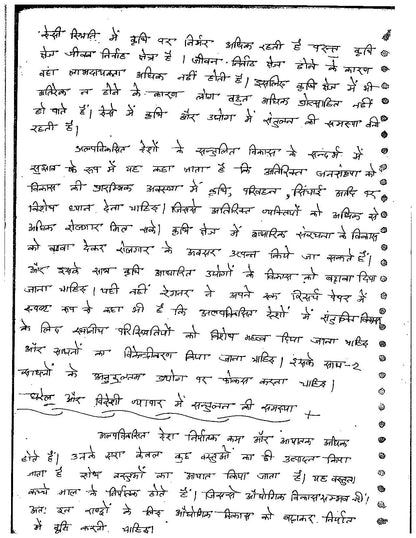 ऐसी स्थिति में कृषि पर निर्भर अधिक रहती है परन्तु कृषि
क्षेत्र जीवन निर्वाह क्षेत्र है। जीवन-निर्वाह क्षेत्र होने के कारण
वहां लाभदायकता अधिक नहीं होती है। इसलिए कृषि क्षेत्र में भी
अतिरेक न होने के कारण लोग बहुत अधिक प्रोत्साहित नहीं
हो पाते हैं। ऐसे में कृषि और उद्योग में संतुलन की समस्या बनी
रहती है।
अल्पविकसित देशों के सन्तुलित विकास के सन्दर्भ में
सुझाव के रूप में यह कहा जाता है कि अतिरिक्त जनसंख्या को
विकास की प्रारम्भिक अवस्था में कृषि, परिवहन, सिंचाई आदि पर
विशेष ध्यान देना चाहिए। जिससे अतिरिक्त व्यक्तियों को अधिक से
अधिक रोजगार मिल सके। कृषि क्षेत्र में संरचना के विकास
को बढ़ावा देकर रोजगार के अवसर उत्पन्न किये जा सकते हैं।
और इसके साथ कृषि आधारित उद्योगों के विकास को बढ़ावा दिया
जाना चाहिए। यही नहीं ने अपने एक रिसर्च पेपर में
स्पष्ट रूप से कहा भी है कि अल्पविकसित देशों में संतुलित विकास
के लिए स्थानीय परिस्थितियों को विशेष महत्व दिया जाना चाहिए
और साधनों का विकेन्द्रीकरण किया जाना चाहिए। इसके साथ-2
साधनों के अनुकूलतम उपयोग पर फोकस करना चाहिए।
घरेलू और विदेशी व्यापार में सन्तुलन की समस्या
अल्पविकसित देश निर्यातक कम और आयातक अधिक
होते हैं। उनके द्वारा केवल कुछ वस्तुओं का ही उत्पादन किया
जाता है शेष वस्तुओं का आयात किया जाता है। यह वस्तुतः
कच्चे माल के निर्यातक होते हैं। जिससे औद्योगिक विकास सम्भव नहीं।
अतः इन राष्ट्रों के लिए औद्योगिक विकास को बढ़ाकर निर्यात
में वृद्धि करनी चाहिए।